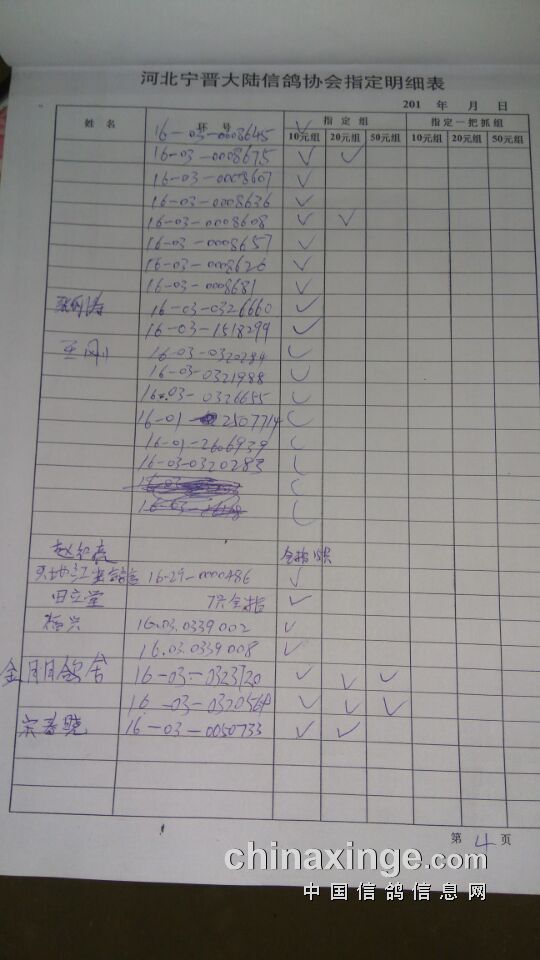 河北宁晋大陆信鸽协会指定明细表
201 年 月 日
姓 名 环 号 指 定 组 指定一把抓组
10元组 20元组 50元组 10元组 20元组 50元组
16-03-0008645 ✓
16-03-0008675 ✓ ✓
16-03-0008607 ✓
16-03-0008636 ✓
16-03-0008608 ✓ ✓
16-03-0008657 ✓
16-03-0008626 ✓
16-03-0008681 ✓
16-03-0326660 ✓
16-03-1518299 ✓
王刚 16-03-0320284 ✓
16-03-0321988 ✓
16-03-0326655 ✓
16-01 2507714
16-01-2606939
16-03-0320283
16-03
16-03
全指
16-29-0000486 ✓
田立堂 7只全指 ✓
振兴 16.03.0339002 ✓
16.03.0339008 ✓
金月月鸽舍 16-03-0323720 ✓ ✓ ✓
16-03-0320564 ✓ ✓ ✓
宋春晓 16-03-0050733 ✓ ✓
第 4 页
chinaxinge.com
中国信鸽信息网